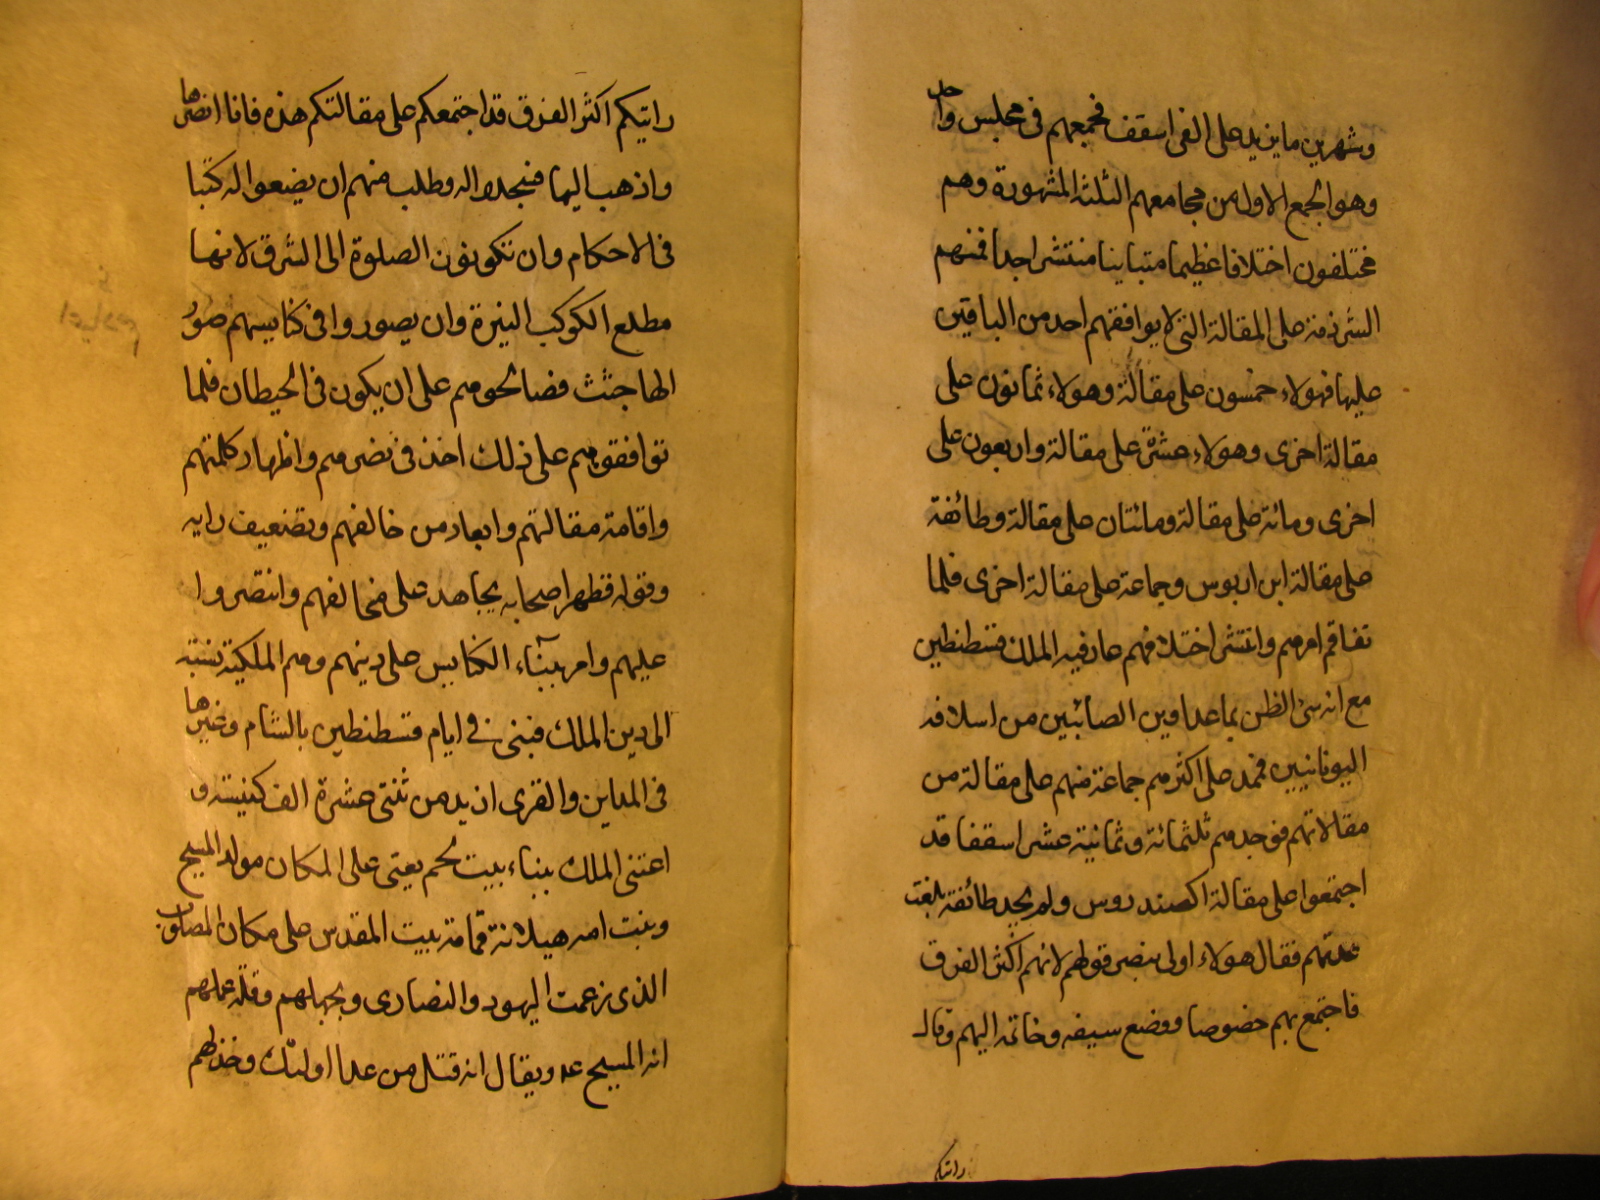 وشهرين ما يزيد على الفى اسقف فجمعهم فى مجلس واحد
وهو الجمع الاول من مجامعهم الثلثة المشهورة وهم
مختلفون اختلافا عظيما متباينا منتشرا جدا فمنهم
الشرذمة على المقالة التى لا يوافقهم احد من الباقين
عليها فهولاء خمسون على مقالة وهولاء ثمانون على
مقالة اخرى وهولاء عشرة على مقالة واربعون على
اخرى ومائة على مقالة ومائتان على مقالة وطائفة
على مقالة ابن اريوس وجماعة على مقالة اخرى فلما
تفاقم امرهم وانتشر اختلافهم حار فيه الملك قسطنطين
مع انه سئ الظن بما عدا دين الصائبين من اسلافه
اليونانيين فعمد على اكثرهم جماعة منهم على مقالة من
مقالاتهم فوجدهم ثلثمائة وثمانية عشر اسقفا قد
اجتمعوا على مقالة اكصندروس ولم يجد طائفة بلغت
عدتهم فقال هولاء اولى بنصر قولهم لانهم اكثر الفرق
فاجتمع بهم خصوصا ووضع سيفه وخاتمه اليهم وقال
رايتكم
رايتكم اكثر الفرق قد اجتمعكم على مقالتكم هذه فانا انصرها
واذهب اليها فسجدوا له وطلب منهم ان يضعوا له كتبا
فى الاحكام وان تكون الصلوة الى الشرق لانها
مطلع الكوكب النيرة وان يصوروا فى كنايسهم صورُ
لها جثث فصالحوهم على ان يكون فى الحيطان فلما
توافقوهم على ذلك اخذ فى نصرهم واظهار كلمتهم
واقامة مقالتهم وابعاد من خالفهم وتضعيف رايه
وقوله فظهر اصحابه يجاهد على مخالفهم وانتصروا
عليهم وامر ببنآء الكنايس على دينهم وهم الملكية نسبة
الى دين الملك فبنى فى ايام قسطنطين بالشام وغيرها
فى المداين والقرى ازيد من ثنتى عشرة الف كنيسة و
اعتنى الملك ببناء بيت لحم يعنى على المكان مولد المسيح
وبنت امه هيلانة قمامة بيت المقدس على مكان المصلوب
الذى زعمت اليهود والنصارى وبجهلهم وقلة علمهم
انه المسيح عه ويقال انه قتل من عدا اولئك وخذ لهم